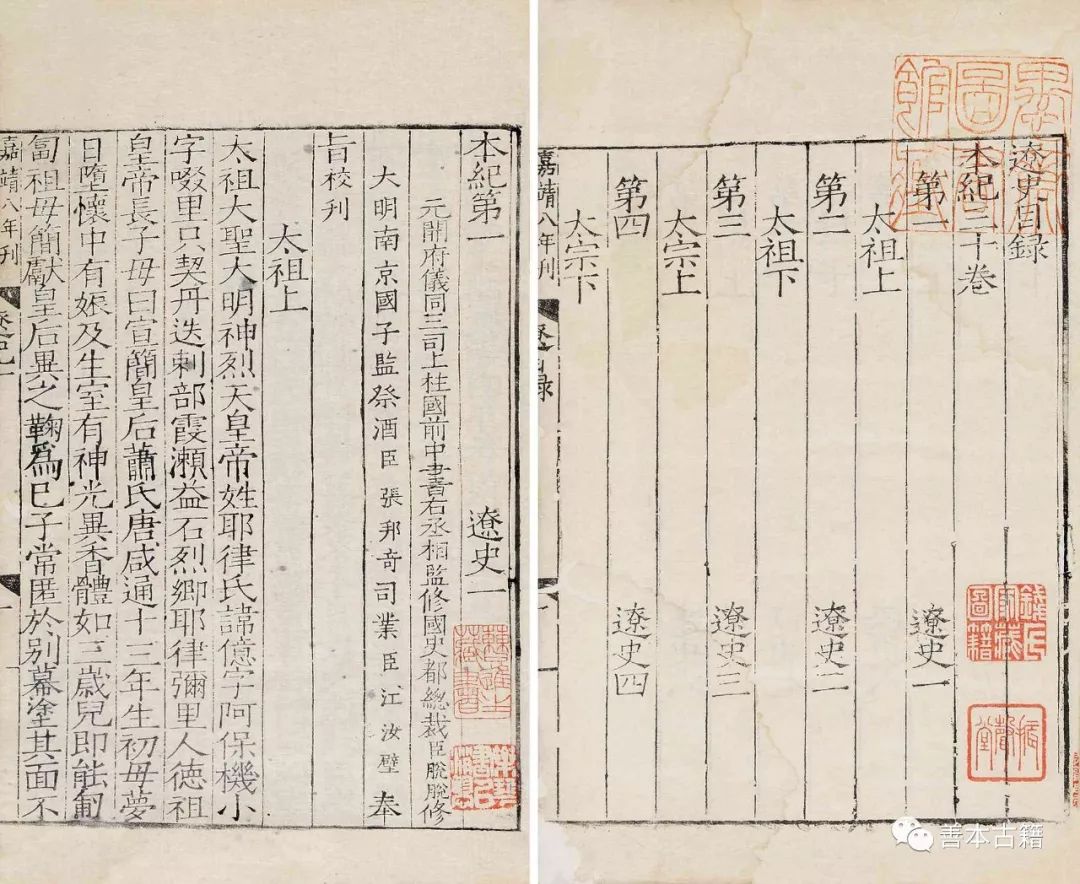 遼史目録
本紀三十卷
第一 遼史一
太祖上
第二 遼史二
太祖下
第三 遼史三
太宗上
第四 遼史四
太宗下
嘉靖八年刊 目録 一
本紀第一 遼史一
元開府儀同三司上柱國前中書右丞相監修國史都總裁臣脫脫修
大明南京國子監祭酒臣張邦奇司業臣江汝璧奉
旨校刊
太祖上
太祖大聖大明神烈天皇帝姓耶律氏諱億字阿保機小
字啜里只契丹迭剌部霞瀬益石烈鄉耶律彌里人德祖
皇帝長子母曰宣簡皇后蕭氏唐咸通十三年生初母夢
日墮懷中有娠及生室有神光異香體如三歲兒即能匍
匐祖母簡獻皇后異之鞠爲已子常匿於别幕塗其面不
嘉靖八年刊 一
錢氏家藏圖籍
善本古籍